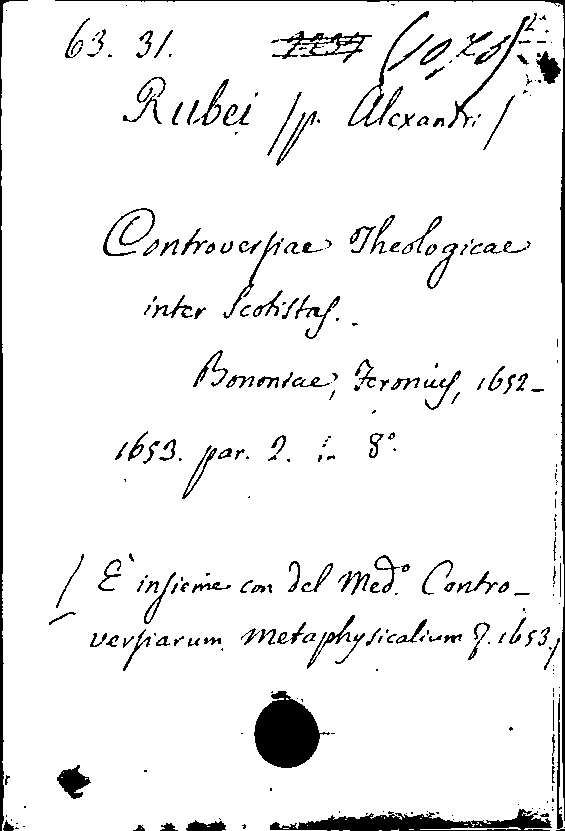 63. 31. (1078)
Rubei /p. Alexandri/
Controversiae Theologicae
inter Scotistas.
Bononiae, Feronius, 1652-
1653. par. 2. in 8°.
/ È insieme con del Med.° Contro-
versiarum Metaphysicalium &. 1653./